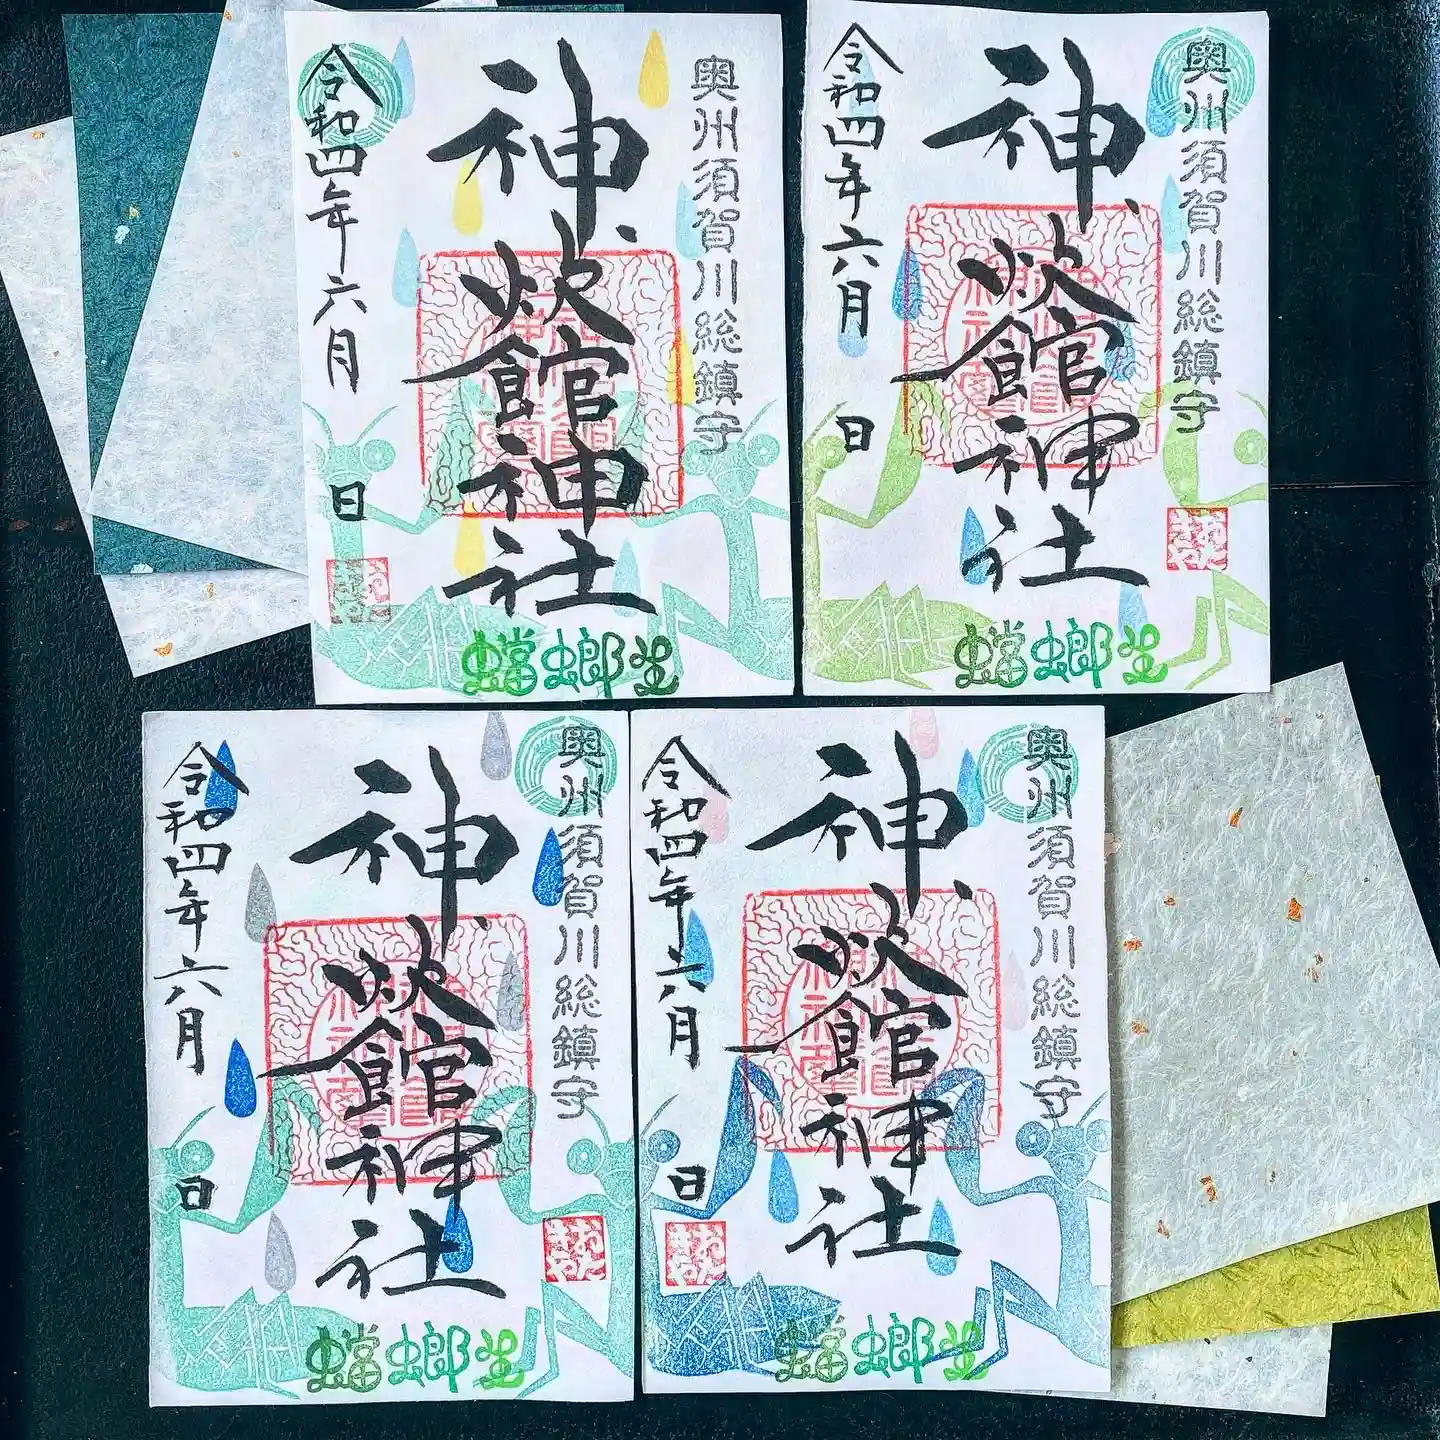 奥州須賀川総鎮守
神炊館神社
令和四年六月 日
蟷螂生
奥州須賀川総鎮守
神炊館神社
令和四年六月 日
蟷螂生
奥州須賀川総鎮守
神炊館神社
令和四年六月 日
蟷螂生
奥州須賀川総鎮守
神炊館神社
令和四年六月 日
蟷螂生